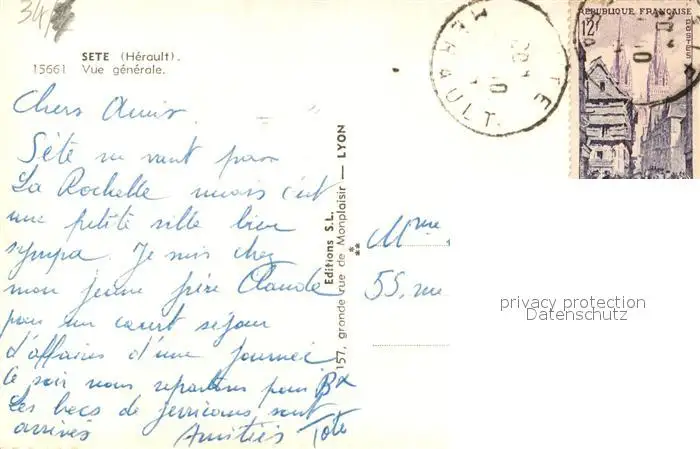 34
SETE (Hérault).
15661 Vue générale.
Chers Amis
Sète ne vaut pas
La Rochelle mais c'est
une petite ville bien
sympa. Je suis chez
mon jeune frère Claude
pour un court séjour
d'affaires d'une journée
Ce soir nous repartons pour Bx
Les becs de jerricans sont
arrivés Amitiés Toto
Editions S.L.
157, grande rue de Monplaisir — LYON
HERAULT
RÉPUBLIQUE FRANÇAISE
12F
POSTES
Mme
55, rue
privacy protection
Datenschutz